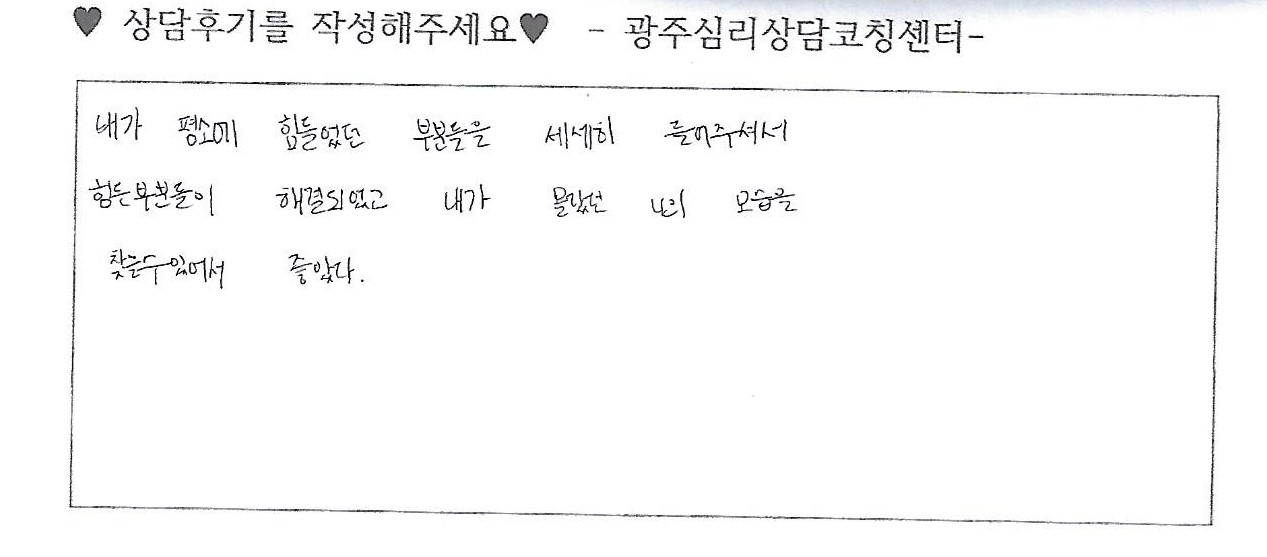 ♥ 상담후기를 작성해주세요♥ - 광주심리상담코칭센터-
내가 평소에 힘들었던 부분들을 세세히 들어주셔서
힘든부분들이 해결되었고 내가 몰랐던 나의 모습을
찾을수있어서 좋았다.